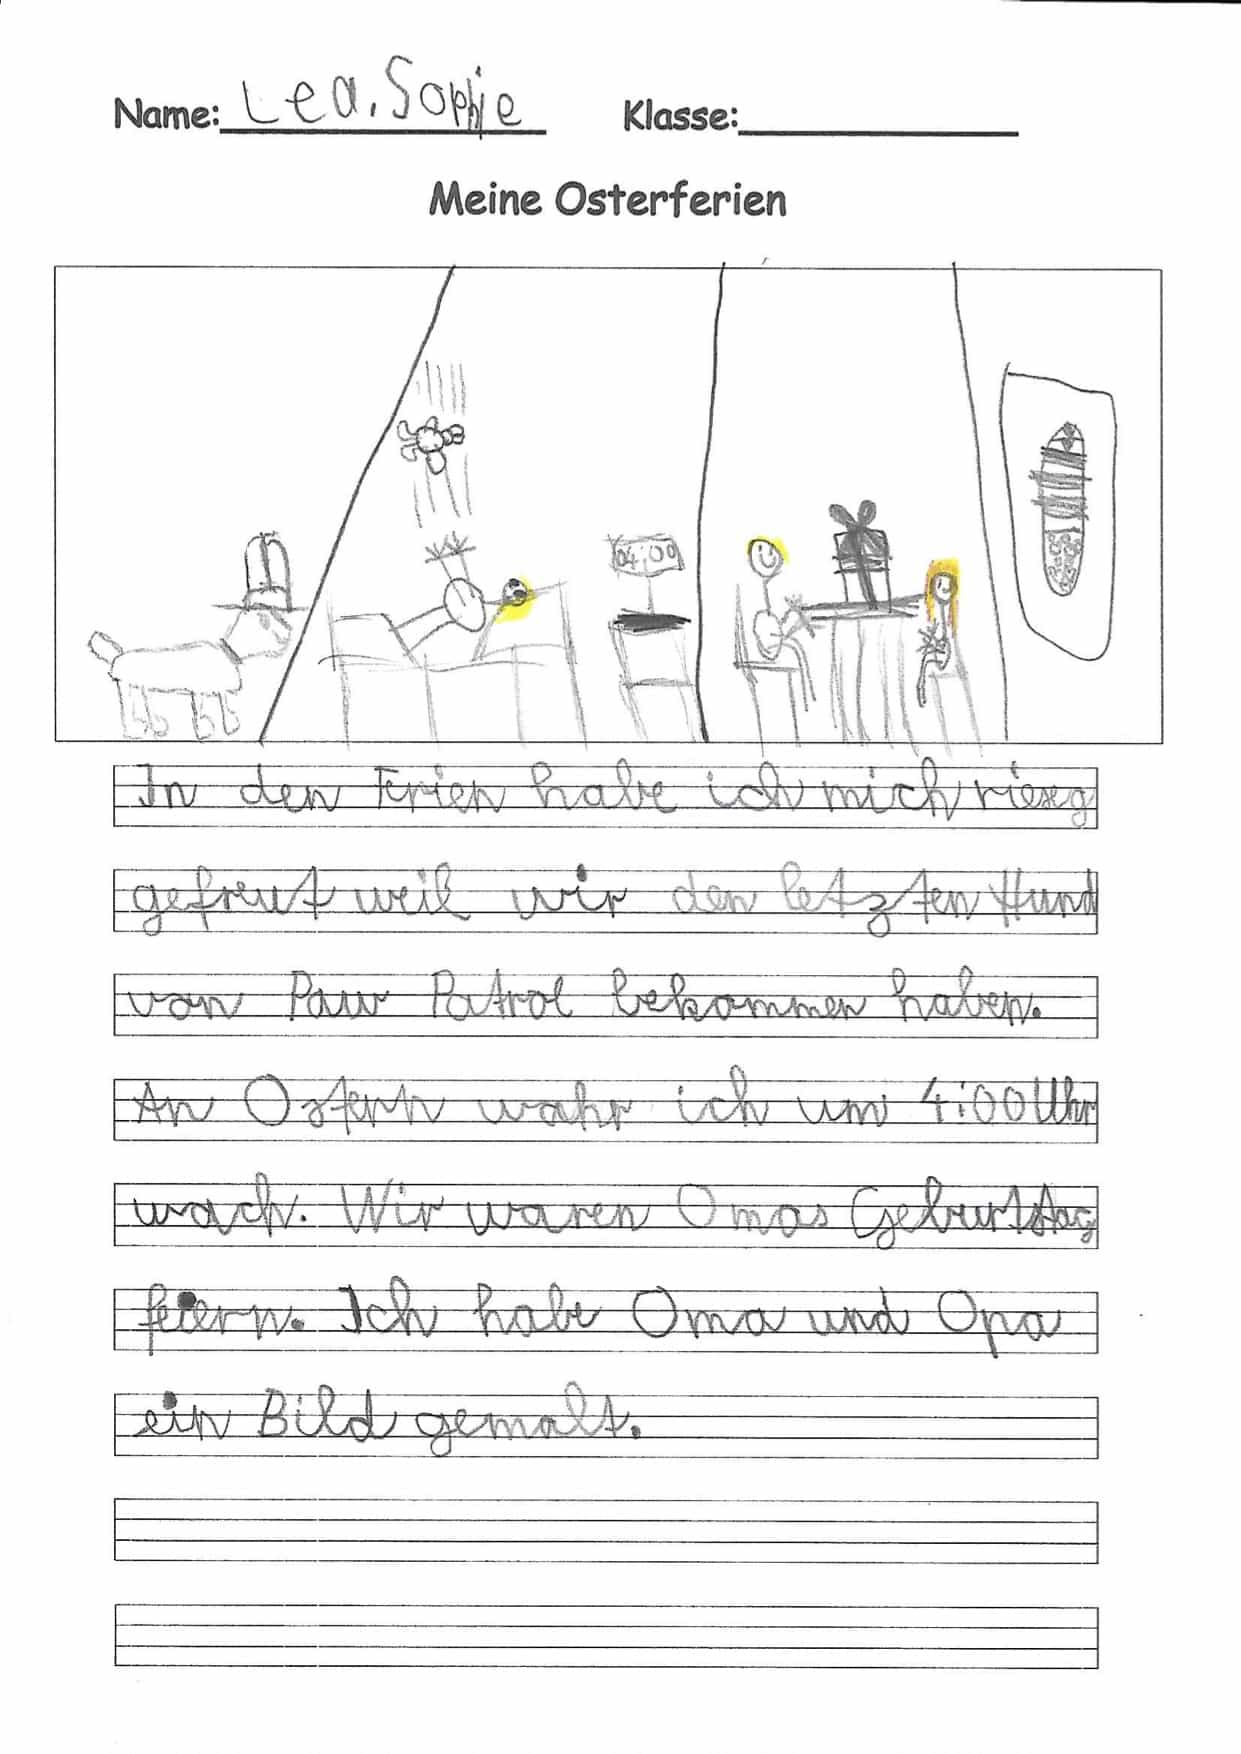 Name: Lea. Sophie Klasse:
Meine Osterferien
04:00
In den Ferien habe ich mich rieseg
gefreut weil wir den letzten Hund
von Paw Patrol bekommen haben.
An Ostern wahr ich um 4:00 Uhr
wach. Wir waren Omas Geburtstag
feiern. Ich habe Oma und Opa
ein Bild gemalt.